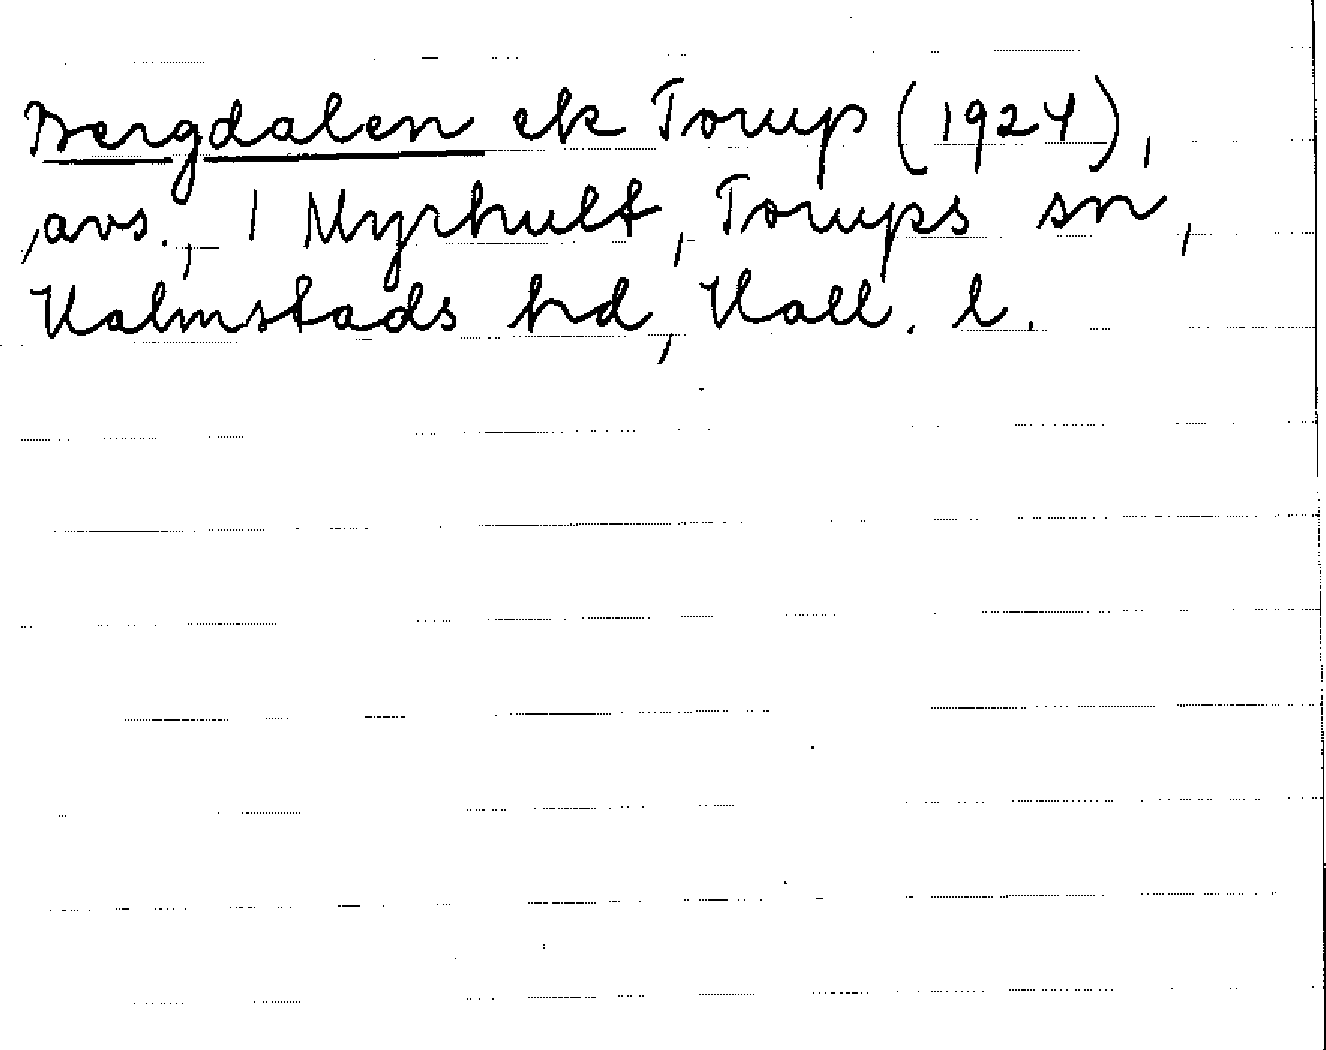 Bergdalen ek Torup (1924),
avs., 1 Myrhult, Torups sn,
Halmstads hd, Hall. l.